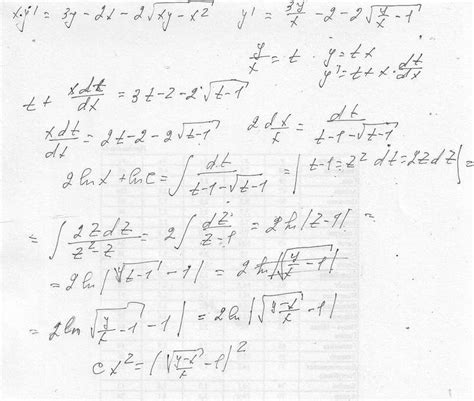 xy' = 3y - 2x - 2√(xy - x²)    y' = 3y/x - 2 - 2√(y/x - 1)
y/x = t · y = tx
y' = t + x · dt/dx
t + xdt/dx = 3t - 2 - 2√(t-1)
xdt/dx = 2t - 2 - 2√(t-1)    2dx/x = dt/(t-1-√(t-1))
2lnx + lnc = ∫ dt/(t-1-√(t-1)) = |t-1 = z² dt = 2zdz| =
= ∫ 2zdz/(z²-z) = 2∫ dz/(z-1) = 2ln|z-1| =
= 2ln|√(t-1) - 1| = 2ln|√(y/x - 1)|
= 2ln √(y/x - 1) - 1| = 2ln|√((y-x)/x) - 1|
cx² = (√((y-x)/x) - 1)²